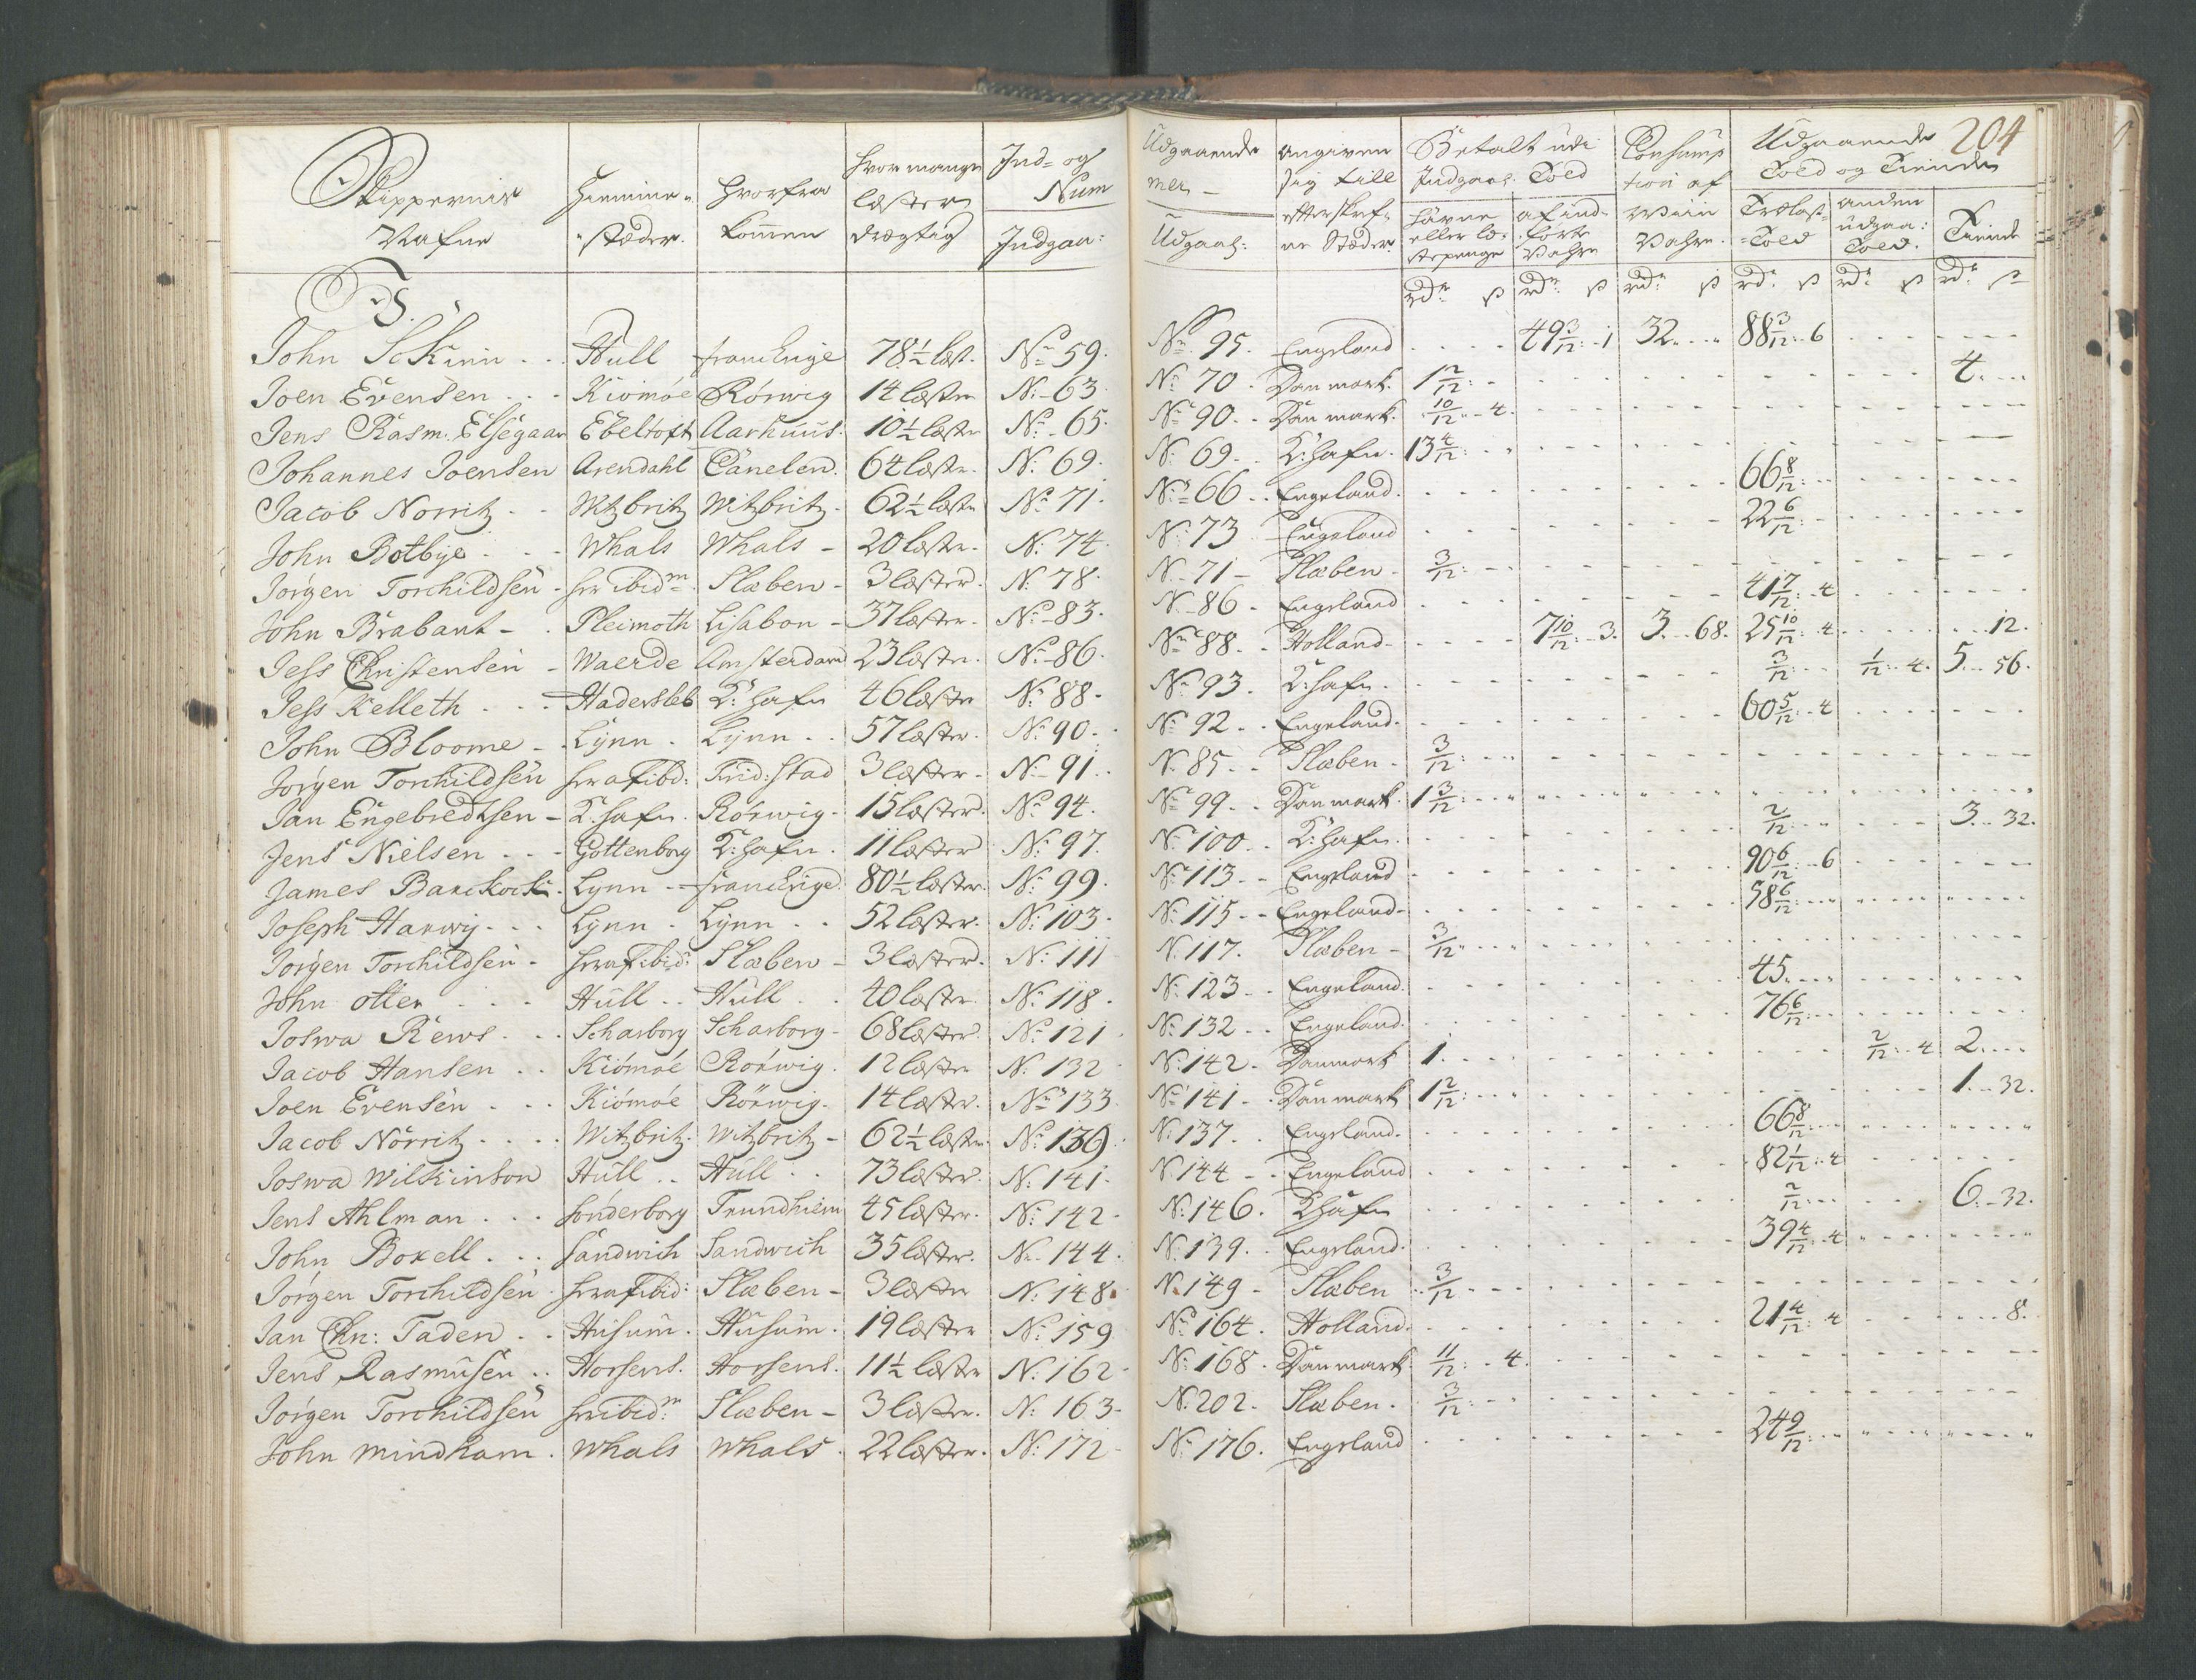 204
Skippernis Nafne | Hiemme-stæder. | Hvorfra kommen | hvor mange læster drægtig | Ind- og Num Indgaa: | Udgaaende mer- Udgaae: | angiven sig till efterskrefne Stæder. | Betalt udi Indgaae. Told | Consumption af Wiin Vahre. | Udgaaende Told og Tiende
havne eller læstepenge | af indførte Vahre | Trælast-Told | anden udgaa: Told. | Tiende
rdr ß | rdr ß | rdr ß | rdr ß | rdr ß | rdr ß
J.
John Sckinn | Hull | franckrige | 78½ læst. | No 59. | No 95. | Engeland | 49 3/12: 1 | 32 | 88 3/12: 6
Joen Evensen | Kiømøe | Rörwig | 14 læster | No 63. | No 70. | Danmark. | 1 2/12: | 4
Jens Rasm: Elsegaar | Ebeltoft | Aarhuus. | 10½ læster | No 65. | No 90. | Danmark. | 10/12 4.
Johannes Joensen | Arendahl | Canelen. | 64 læster. | No 69. | No 69. | K:hafn. | 13 4/12:
Jacob Norritz | Witzbritz | Witzbritz. | 62½ læster | No 71. | No 66. | Engeland. | 66 8/12:
John Botbye | Whals | Whals | 20 læster. | No 74. | No 73. | Engeland | 22 6/12:
Jørgen Torchildsen | her ibidm | Slæben | 3 læster. | No 78. | No 71 | Slæben | 3/12:
John Brabant | Pleimoth | Lisabon | 37 læster. | No 83. | No 86. | Engeland | 41 7/12: 4
Jess Christensen | Waerde | Amsterdam | 23 læster. | No 86. | No 88. | Holland. | 7 10/12: 3. | 3. 68. | 25 10/12: 4 | 12.
Jess Kelleth | Hadersleb | K:hafn | 46 læster | No 88. | No 93. | K:hafn. | 3/12: | 1/12: 4. | 5. 56.
John Bloome | Lynn. | Lynn | 57 læster. | No 90. | No 92. | Engeland. | 60 5/12: 4
Jørgen Torchildsen | her af ibd: | Frid:stad | 3 læster. | No 91. | No 85. | Slæben. | 3/12:
Jan Engebredtsen | K:hafn. | Rörwig. | 15 læster. | No 94. | No 99. | Danmark. | 1 3/12:
Jens Nielsen | Gottenborg | K:hafn. | 11 læster | No 97. | No 100. | K:hafn. | 2/12: | 3. 32.
James Banckock | Lynn | franckriged | 80½ læster. | No 99. | No 113. | Engeland | 90 6/12: 6
Joseph Harwy | Lynn. | Lynn | 52 læster. | No 103. | No 115. | Engeland. | 58 6/12:
Jørgen Torchildsen | her af ibid: | Slæben | 3 læster. | No 111 | No 117. | Slæben | 3/12
John otter | Hull | Hull | 40 læster. | No 118. | No 123. | Engeland. | 45.
Joswa Rews | Scharborg | Scharborg | 68 læster. | No 121 | No 132 | Engeland. | 76 6/12:
Jacob Hansen | Kiömöe | Rörwig. | 12 læster | No 132 | No 142. | Danmark | 1. | 2/12: 4 | 2.
Joen Evensen | Kiömöe | Rörwig. | 14 læster. | No 133 | No 141 | Danmark | 1 2/12: | 1. 32.
Jacob Norritz | Witzbritz. | Witzbritz | 62½ læster. | No 139. | No 137. | Engeland. | 66 8/12:
Joswa Wilkinson | Hull | Hull | 73 læster. | No 141. | No 144 | Engeland | 82 1/12: 4
Jens Ahlman | Sonderborg | Trundhiem | 45 læster. | No 142. | No 146. | Khafn | 2/12: | 6. 32.
John Boxell | Sandwich | Sandwich | 35 læster. | No 144. | No 139. | Engeland. | 39 4/12: 4
Jørgen Torchildsen | her af ibid: | Slæben | 3 læster | No 148. | No 149. | Slæben | 3/12
Jan Chr: Taden | Husum. | Husum. | 19 læster | No 159 | No 164. | Holland. | 21 4/12: 4 | 8.
Jens Rasmusen | Horsens. | Horsens. | 11½ læster | No 162 | No 168. | Danmark. | 11/12: 4.
Jørgen Torchildsen | her ibid:m | Slæben | 3 læster. | No 163. | No 202. | Slæben. | 3/12:
John mindham. | Whals | Whals. | 22 læster. | No 172 | No 176. | Engeland | 24 9/12: